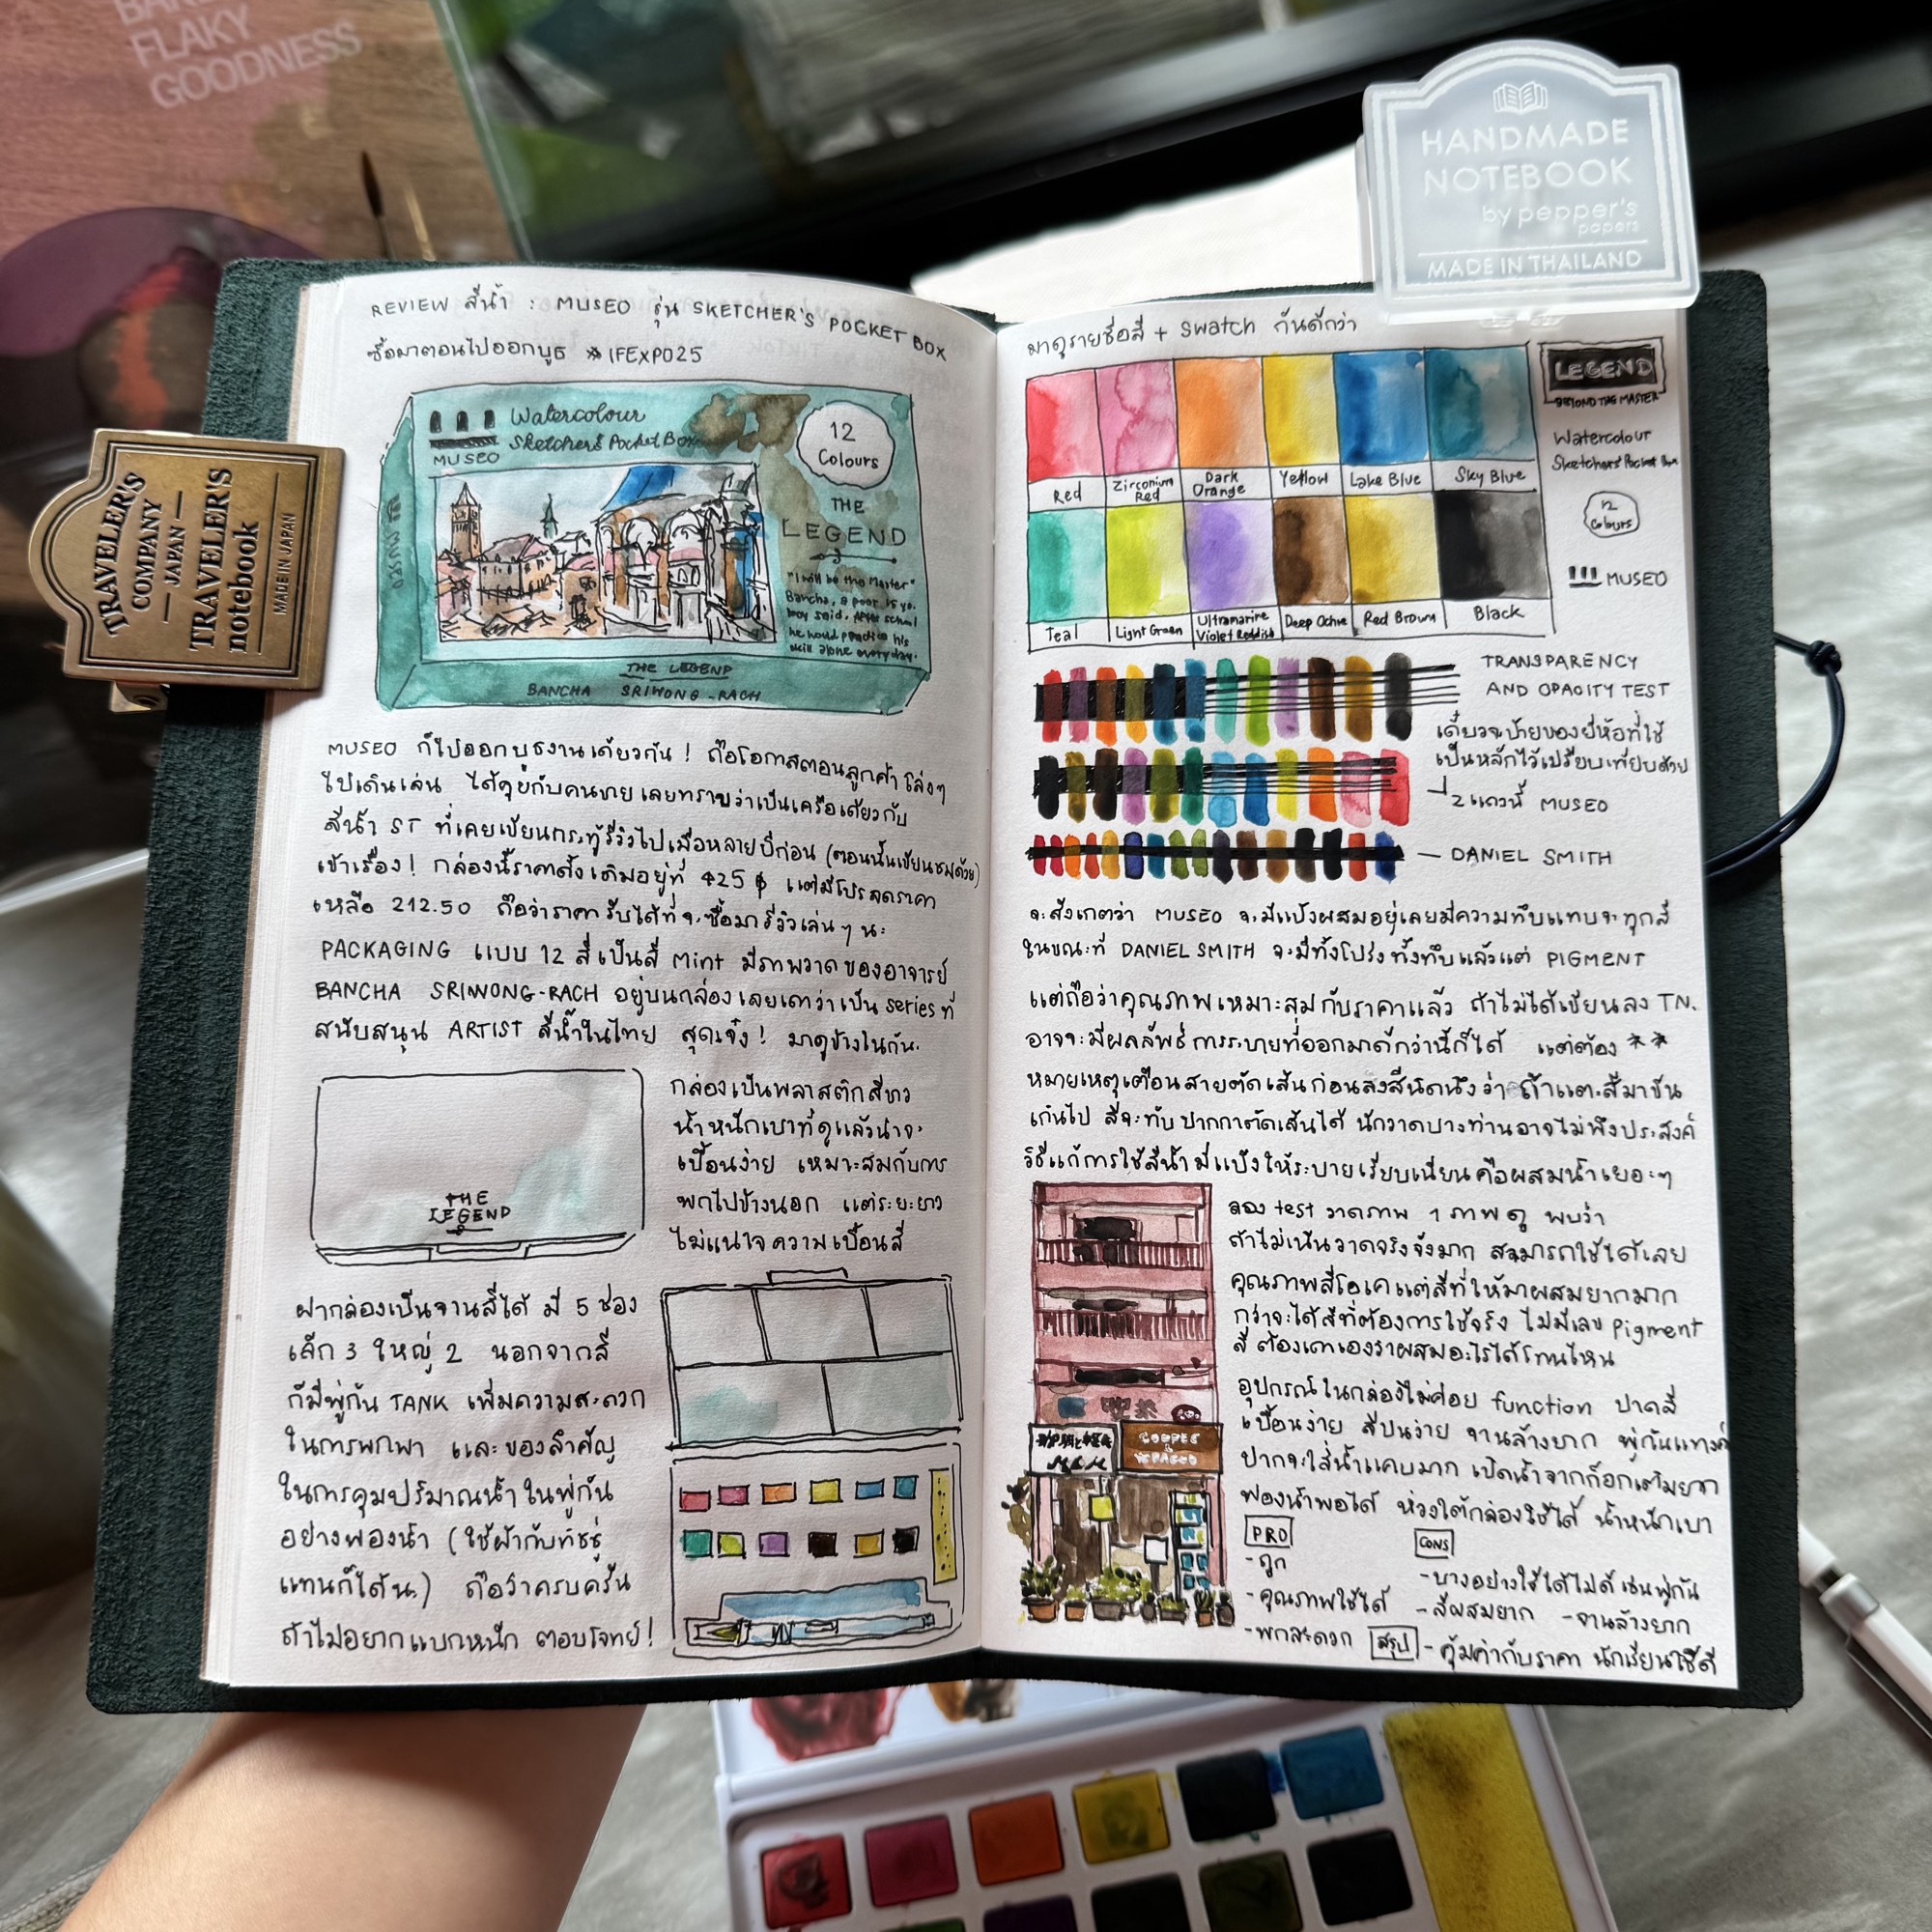 BAKE
FLAKY
GOODNESS
HANDMADE
NOTEBOOK
by pepper's
papers
MADE IN THAILAND
TRAVELER'S
COMPANY
— JAPAN —
TRAVELER'S
notebook
MADE IN JAPAN
REVIEW สีน้ำ : MUSEO รุ่น SKETCHER'S POCKET BOX
ซื้อมาตอนไปออกบูธ * IFEXPO25
Watercolour
Sketcher's Pocket Box
MUSEO
12
Colours
THE
LEGEND
"I will be the Master"
Bancha, a poor 15 yo.
boy said. After school
he would practice his
skill alone everyday.
THE LEGEND
BANCHA SRIWONG-RACH
MUSEO ก็ไปออกบูธงานเดียวกัน ! ถือโอกาสตอนลูกค้าโล่งๆ
ไปเดินเล่น ได้คุยกับคนขาย เลยทราบว่าเป็นเครือเดียวกับ
สีน้ำ ST ที่เคยเขียนกระทู้รีวิวไปเมื่อหลายปีก่อน (ตอนนั้นเขียนชมด้วย)
เข้าเรื่อง ! กล่องนี้ราคาตั้งเดิมอยู่ที่ 425 ฿ แต่มีโปรลดราคา
เหลือ 212.50 ถือว่าราคารับได้ที่จะซื้อมารีวิวเล่นๆ นะ
PACKAGING แบบ 12 สี เป็นสี Mint มีภาพวาดของอาจารย์
BANCHA SRIWONG-RACH อยู่บนกล่อง เลยเดาว่าเป็น series ที่
สนับสนุน ARTIST สีน้ำในไทย สุดเจ๋ง ! มาดูข้างในกัน.
THE
LEGEND
กล่องเป็นพลาสติกสีขาว
น้ำหนักเบาที่ดูแล้วน่าจะ
เปื้อนง่าย เหมาะสมกับการ
พกไปข้างนอก แต่ระยะยาว
ไม่แน่ใจความเปื้อนสี
ฝากล่องเป็นจานสีได้ มี 5 ช่อง
เล็ก 3 ใหญ่ 2 นอกจากสี
ก็มีพู่กัน TANK เพิ่มความสะดวก
ในการพกพา และของสำคัญ
ในการคุมปริมาณน้ำในพู่กัน
อย่างฟองน้ำ (ใช้ผ้ากับทิชชู่
แทนก็ได้นะ) ถือว่าครบครัน
ถ้าไม่อยากแบกหนัก ตอบโจทย์ !
มาดูรายชื่อสี + swatch กันดีกว่า
Red
Zirconium Red
Dark Orange
Yellow
Lake Blue
Sky Blue
Teal
Light Green
Ultramarine Violet Reddish
Deep Ochre
Red Brown
Black
LEGEND
BEYOND THE MASTER
Watercolour
Sketchers' Pocket Box
12
Colours
MUSEO
TRANSPARENCY
AND OPACITY TEST
เดี๋ยวจะป้ายของยี่ห้อที่ใช้
เป็นหลักไว้เปรียบเทียบด้วย
2 แถวนี้ MUSEO
— DANIEL SMITH
จะสังเกตว่า MUSEO จะมีแป้งผสมอยู่เลยมีความทึบแทบจะทุกสี
ในขณะที่ DANIEL SMITH จะมีทั้งโปร่งทั้งทึบแล้วแต่ PIGMENT
แต่ถือว่าคุณภาพเหมาะสมกับราคาแล้ว ถ้าไม่ได้เขียนลง TN.
อาจจะมีผลลัพธ์การระบายที่ออกมาดีกว่านี้ก็ได้ แต่ต้อง **
หมายเหตุเตือนสายตัดเส้นก่อนลงสีนิดนึงว่า ถ้าแตะสีมาข้น
เกินไป สีจะทับปากกาตัดเส้นได้ นักวาดบางท่านอาจไม่พึงประสงค์
วิธีแก้การใช้สีน้ำมีแป้งให้ระบายเรียบเนียนคือผสมน้ำเยอะๆ
ลอง test วาดภาพ 1 ภาพดู พบว่า
ถ้าไม่เน้นวาดจริงจังมาก สามารถใช้ได้เลย
คุณภาพสีโอเค แต่สีที่ให้มาผสมยากมาก
กว่าจะได้สีที่ต้องการใช้จริง ไม่มีเลข Pigment
สี ต้องเดาเองว่าผสมอะไรได้โทนไหน
อุปกรณ์ในกล่องไม่ค่อย function ปาดสี
เปื้อนง่าย สีปนง่าย จานล้างยาก พู่กันแทงค์
ปากจะใส่น้ำแคบมาก เปิดน้ำจากก๊อกเติมยาก
ฟองน้ำพอได้ ห่วงใต้กล่องใช้ได้ น้ำหนักเบา
COFFEE
PRO
- ถูก
- คุณภาพใช้ได้
- พกสะดวก
CONS
- บางอย่างใช้ได้ไม่ดี เช่นพู่กัน
- สีผสมยาก - จานล้างยาก
สรุป - คุ้มค่ากับราคา นักเรียนใช้ดี